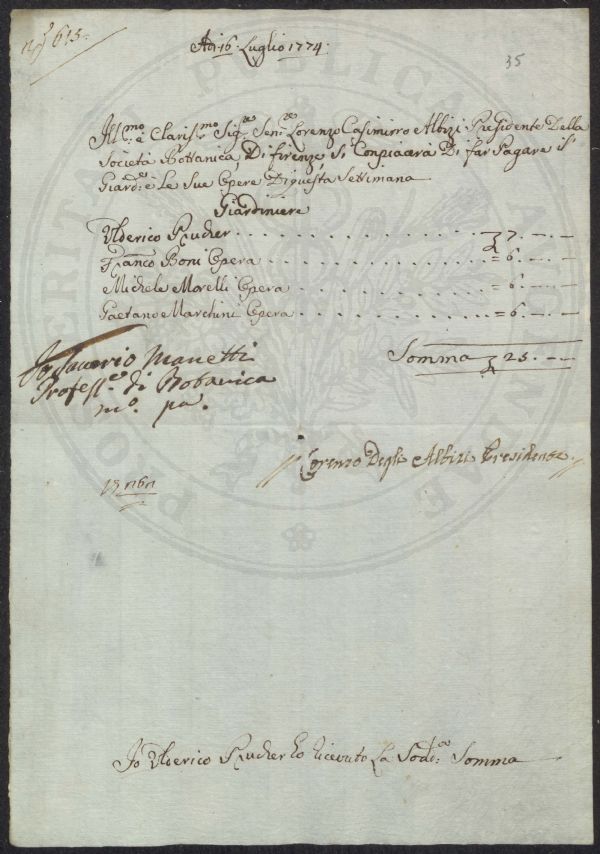 615
Adi 16 Luglio 1774
35
Ill.mo e Claris.mo Sig.re Sen.re Lorenzo Casimirro Albizi Presidente Della
Società Bottanica Di firenze Si Conpiacerà Di far Pagare il
Giard.e e Le Sue Opere Di questa Settimana
Giardiniere
Ulderico Prucker . . . 7. — —
Franco Boni Opera . . . = 6. — —
Michele Morelli Opera . . . = 6. — —
Gaetano Marchini Opera . . . = 6. — —
Somma 25. — —
Io Saverio Manetti
Profess.e di Botanica
m.o pa.
Lorenzo Degli Albizi Presidente
Io Ulderico Prucker ho ricevuto La Sod.a Somma
PROSPERITATI PUBLICAE